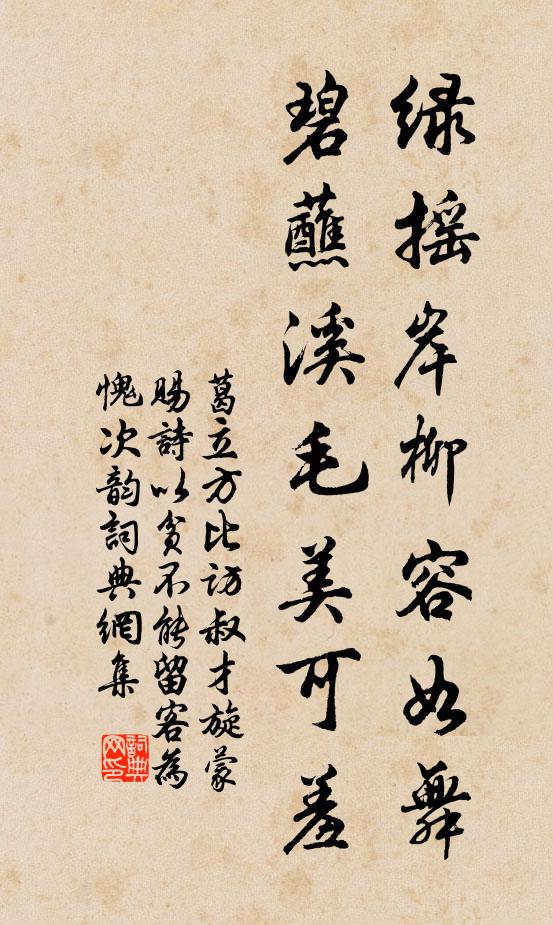 绿摇岸柳容如舞
碧蘸溪毛美可羞
葛立方比访叔才旋蒙
賜詩以贫不能留客為
愧次韵詞典網集
詞典网印